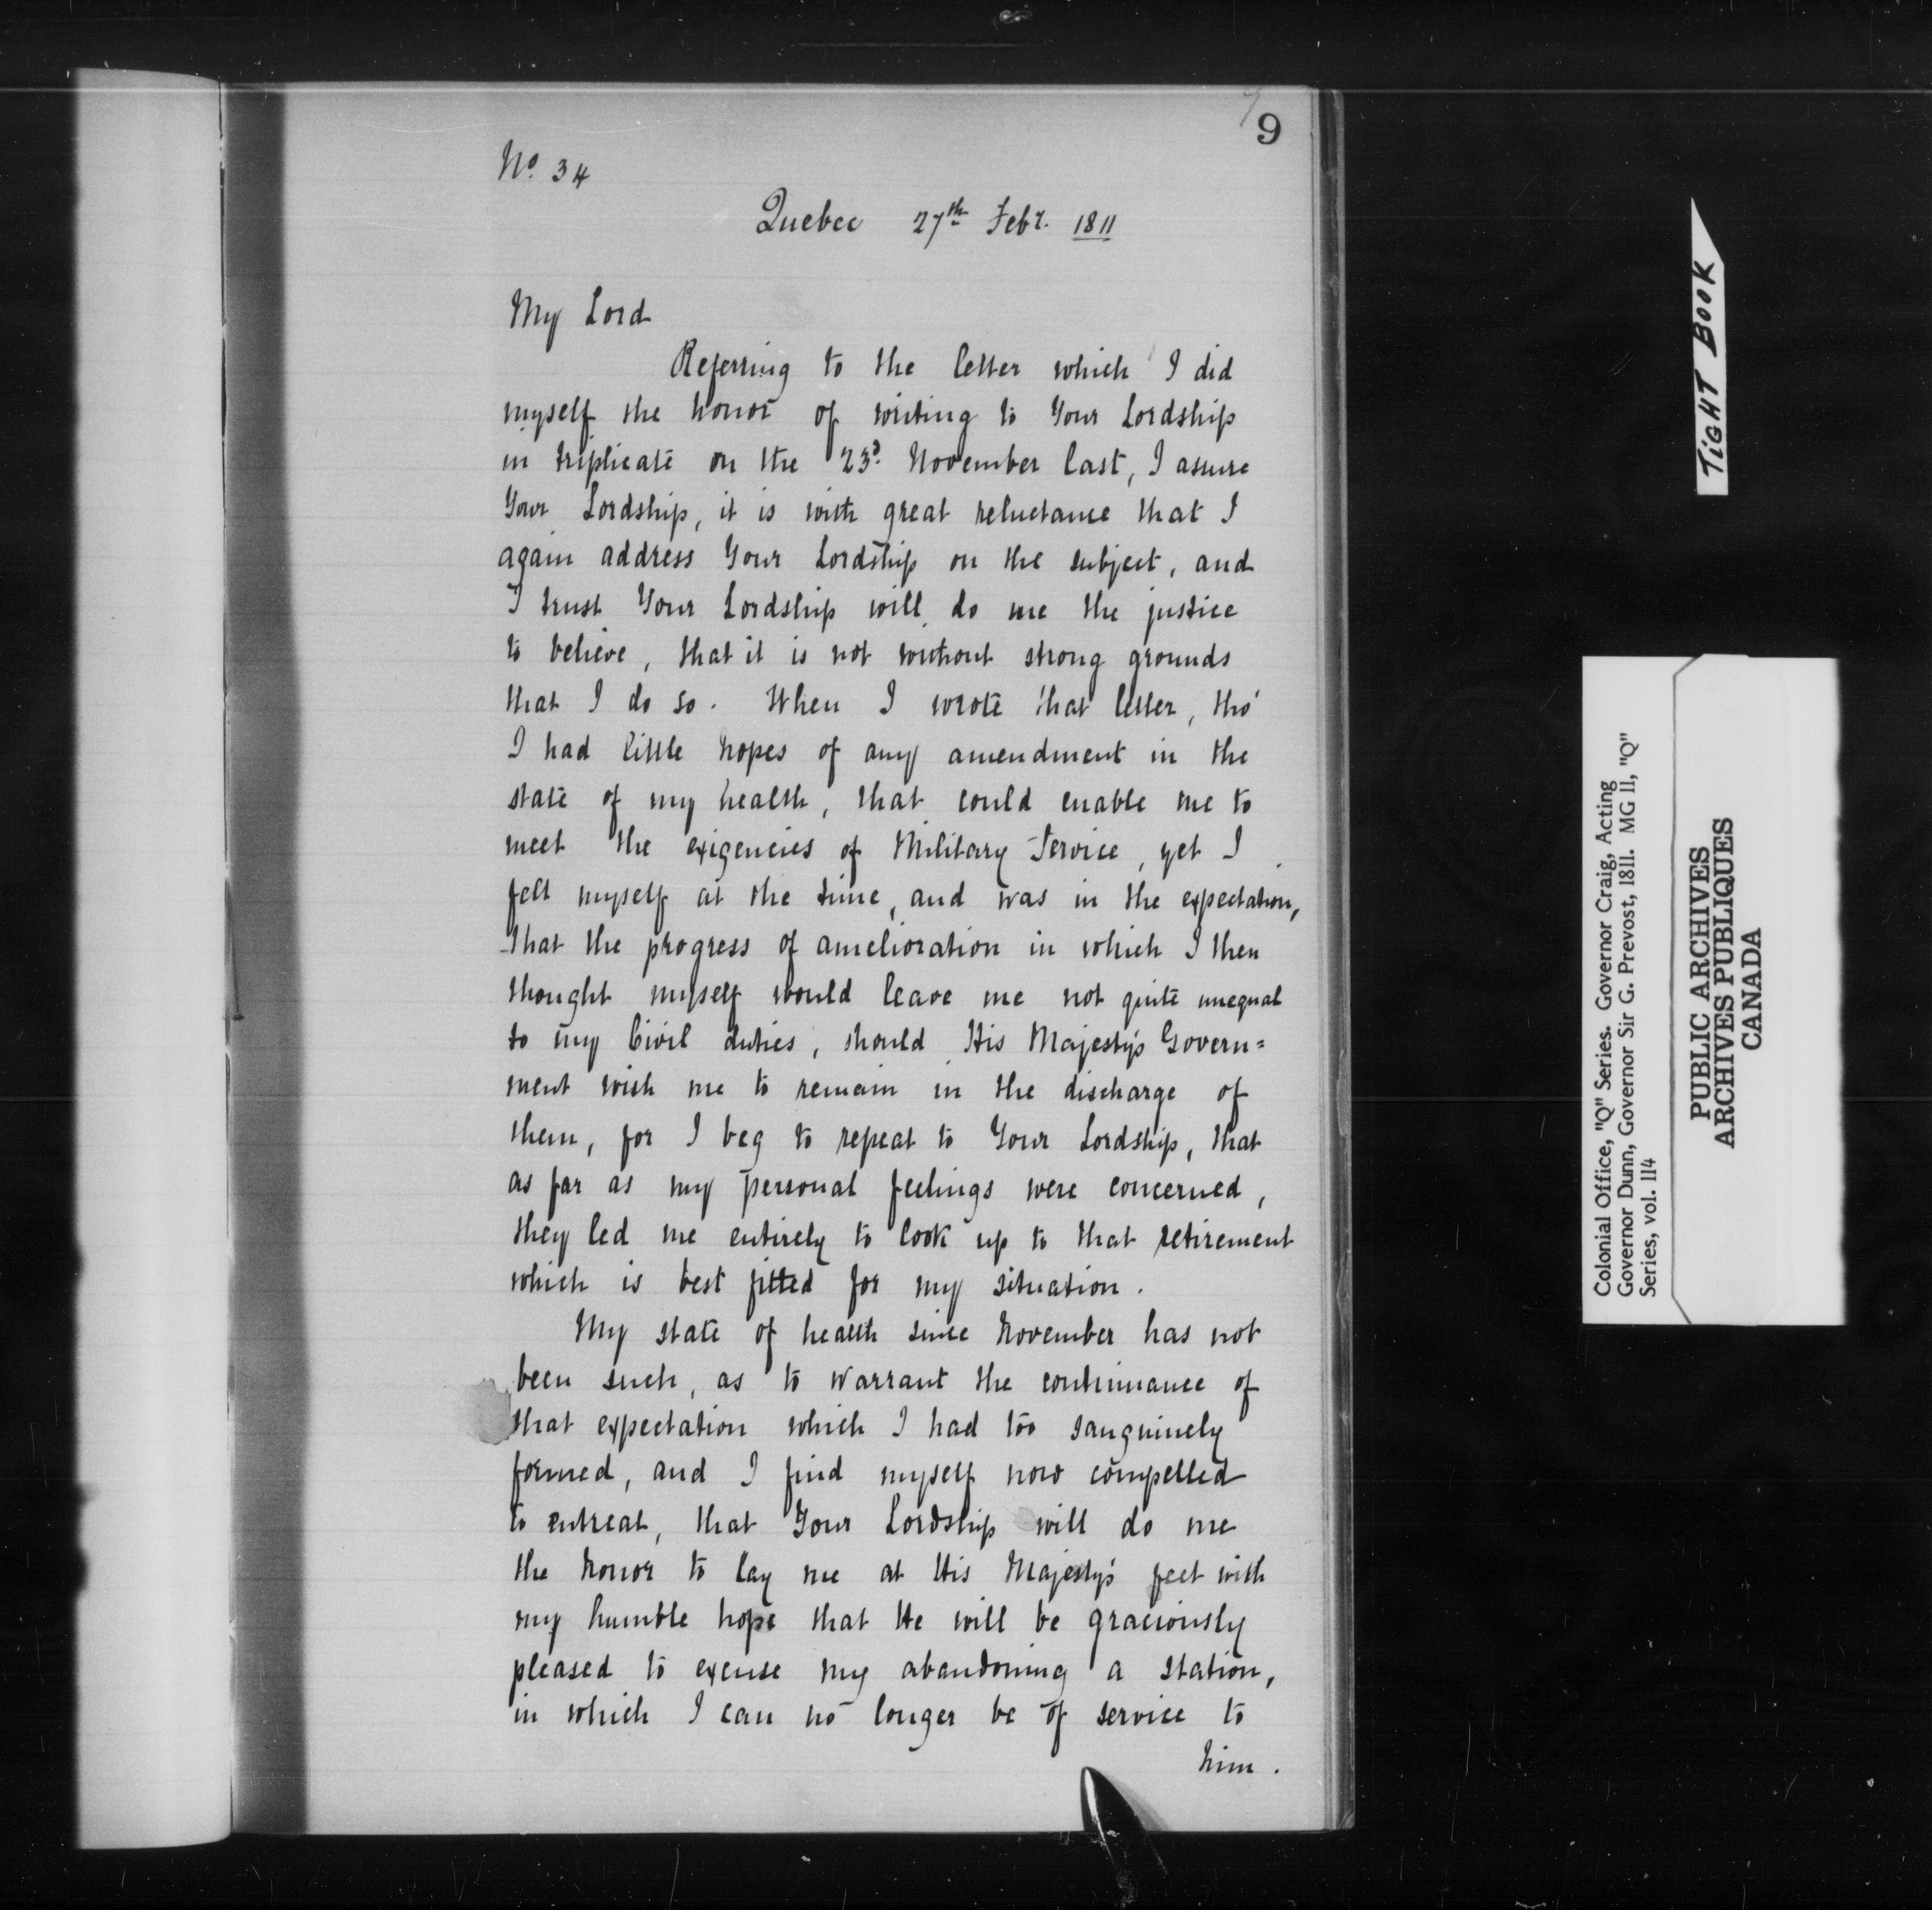 9
No. 34
Quebec 27th Febr. 1811
My Lord
Referring to the letter which I did
myself the honor of writing to Your Lordship
in triplicate on the 23d. November last, I assure
Your Lordship, it is with great reluctance that I
again address Your Lordship on the subject, and
I trust Your Lordship will do me the justice
to believe, that it is not without strong grounds
that I do so. When I wrote that letter, tho'
I had little hopes of any amendment in the
state of my health, that could enable me to
meet the exigencies of Military Service, yet I
felt myself at the time, and was in the expectation,
that the progress of amelioration in which I then
thought myself would leave me not quite unequal
to my Civil duties, should His Majesty's Govern=
ment wish me to remain in the discharge of
them, for I beg to repeat to Your Lordship, that
as far as my personal feelings were concerned,
they led me entirely to look up to that retirement
which is best fitted for my situation.
My state of health since November has not
been such, as to warrant the continuance of
that expectation which I had too sanguinely
formed, and I find myself now compelled
to entreat, that Your Lordship will do me
the honor to lay me at His Majesty's feet with
my humble hope that He will be graciously
pleased to excuse my abandoning a station,
in which I can no longer be of service to
him.
TIGHT BOOK
Colonial Office, "Q" Series. Governor Craig, Acting
Governor Dunn, Governor Sir G. Prevost, 1811. MG 11, "Q"
Series, vol. 114
PUBLIC ARCHIVES
ARCHIVES PUBLIQUES
CANADA